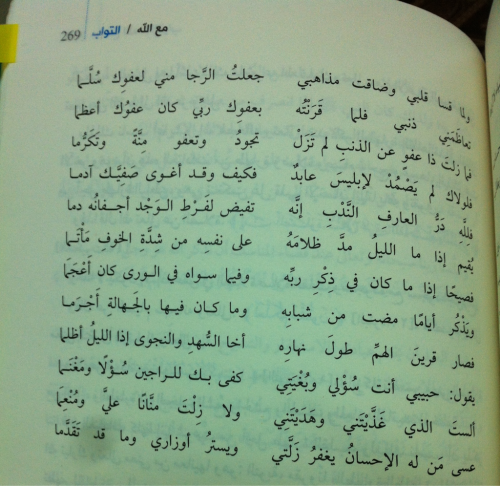 مع الله / التواب 269
ولما قسا قلبي وضاقت مذاهبي جعلتُ الرَّجا مني لعفوِك سُلَّما
تعاظَمَني ذنبي فلما قَرَنْتُه بعفوِك ربِّي كان عفوُك أعظما
فما زلتَ ذا عفو عن الذنبِ لم تَزَلْ تجودُ وتعفو منَّةً وتَكَرُّما
فلولاك لم يَصْمُدْ لإبليسَ عابدٌ فكيف وقد أغوى صَفِيَّك آدما
فللَّهِ دَرُّ العارفِ النَّدْبِ إنَّه تفيض لفَرْطِ الوَجْد أجفانُه دما
يُقيم إذا ما الليلُ مدَّ ظلامَهُ على نفسِه من شِدَّةِ الخوفِ مأتَما
فصيحًا إذا ما كان في ذِكْرِ ربِّه وفيما سواه في الورى كان أَعْجَمَا
ويَذْكُر أيامًا مضت من شبابِه وما كان فيها بالجَهالةِ أَجْرَمَا
فصار قرينَ الهمِّ طولَ نهارِه أخا السُّهدِ والنجوى إذا الليلُ أظلما
يقول: حبيبي أنت سُؤْلي وبُغْيَتِي كفى بك للراجين سُؤْلًا ومَغْنَما
ألستَ الذي غَذَّيْتَني وهَدَيْتَني ولا زِلْتَ منَّانًا عليَّ ومُنْعِمَا
عسى مَن له الإحسانُ يغفرُ زَلَّتي ويسترُ أوزاري وما قد تَقَدَّما